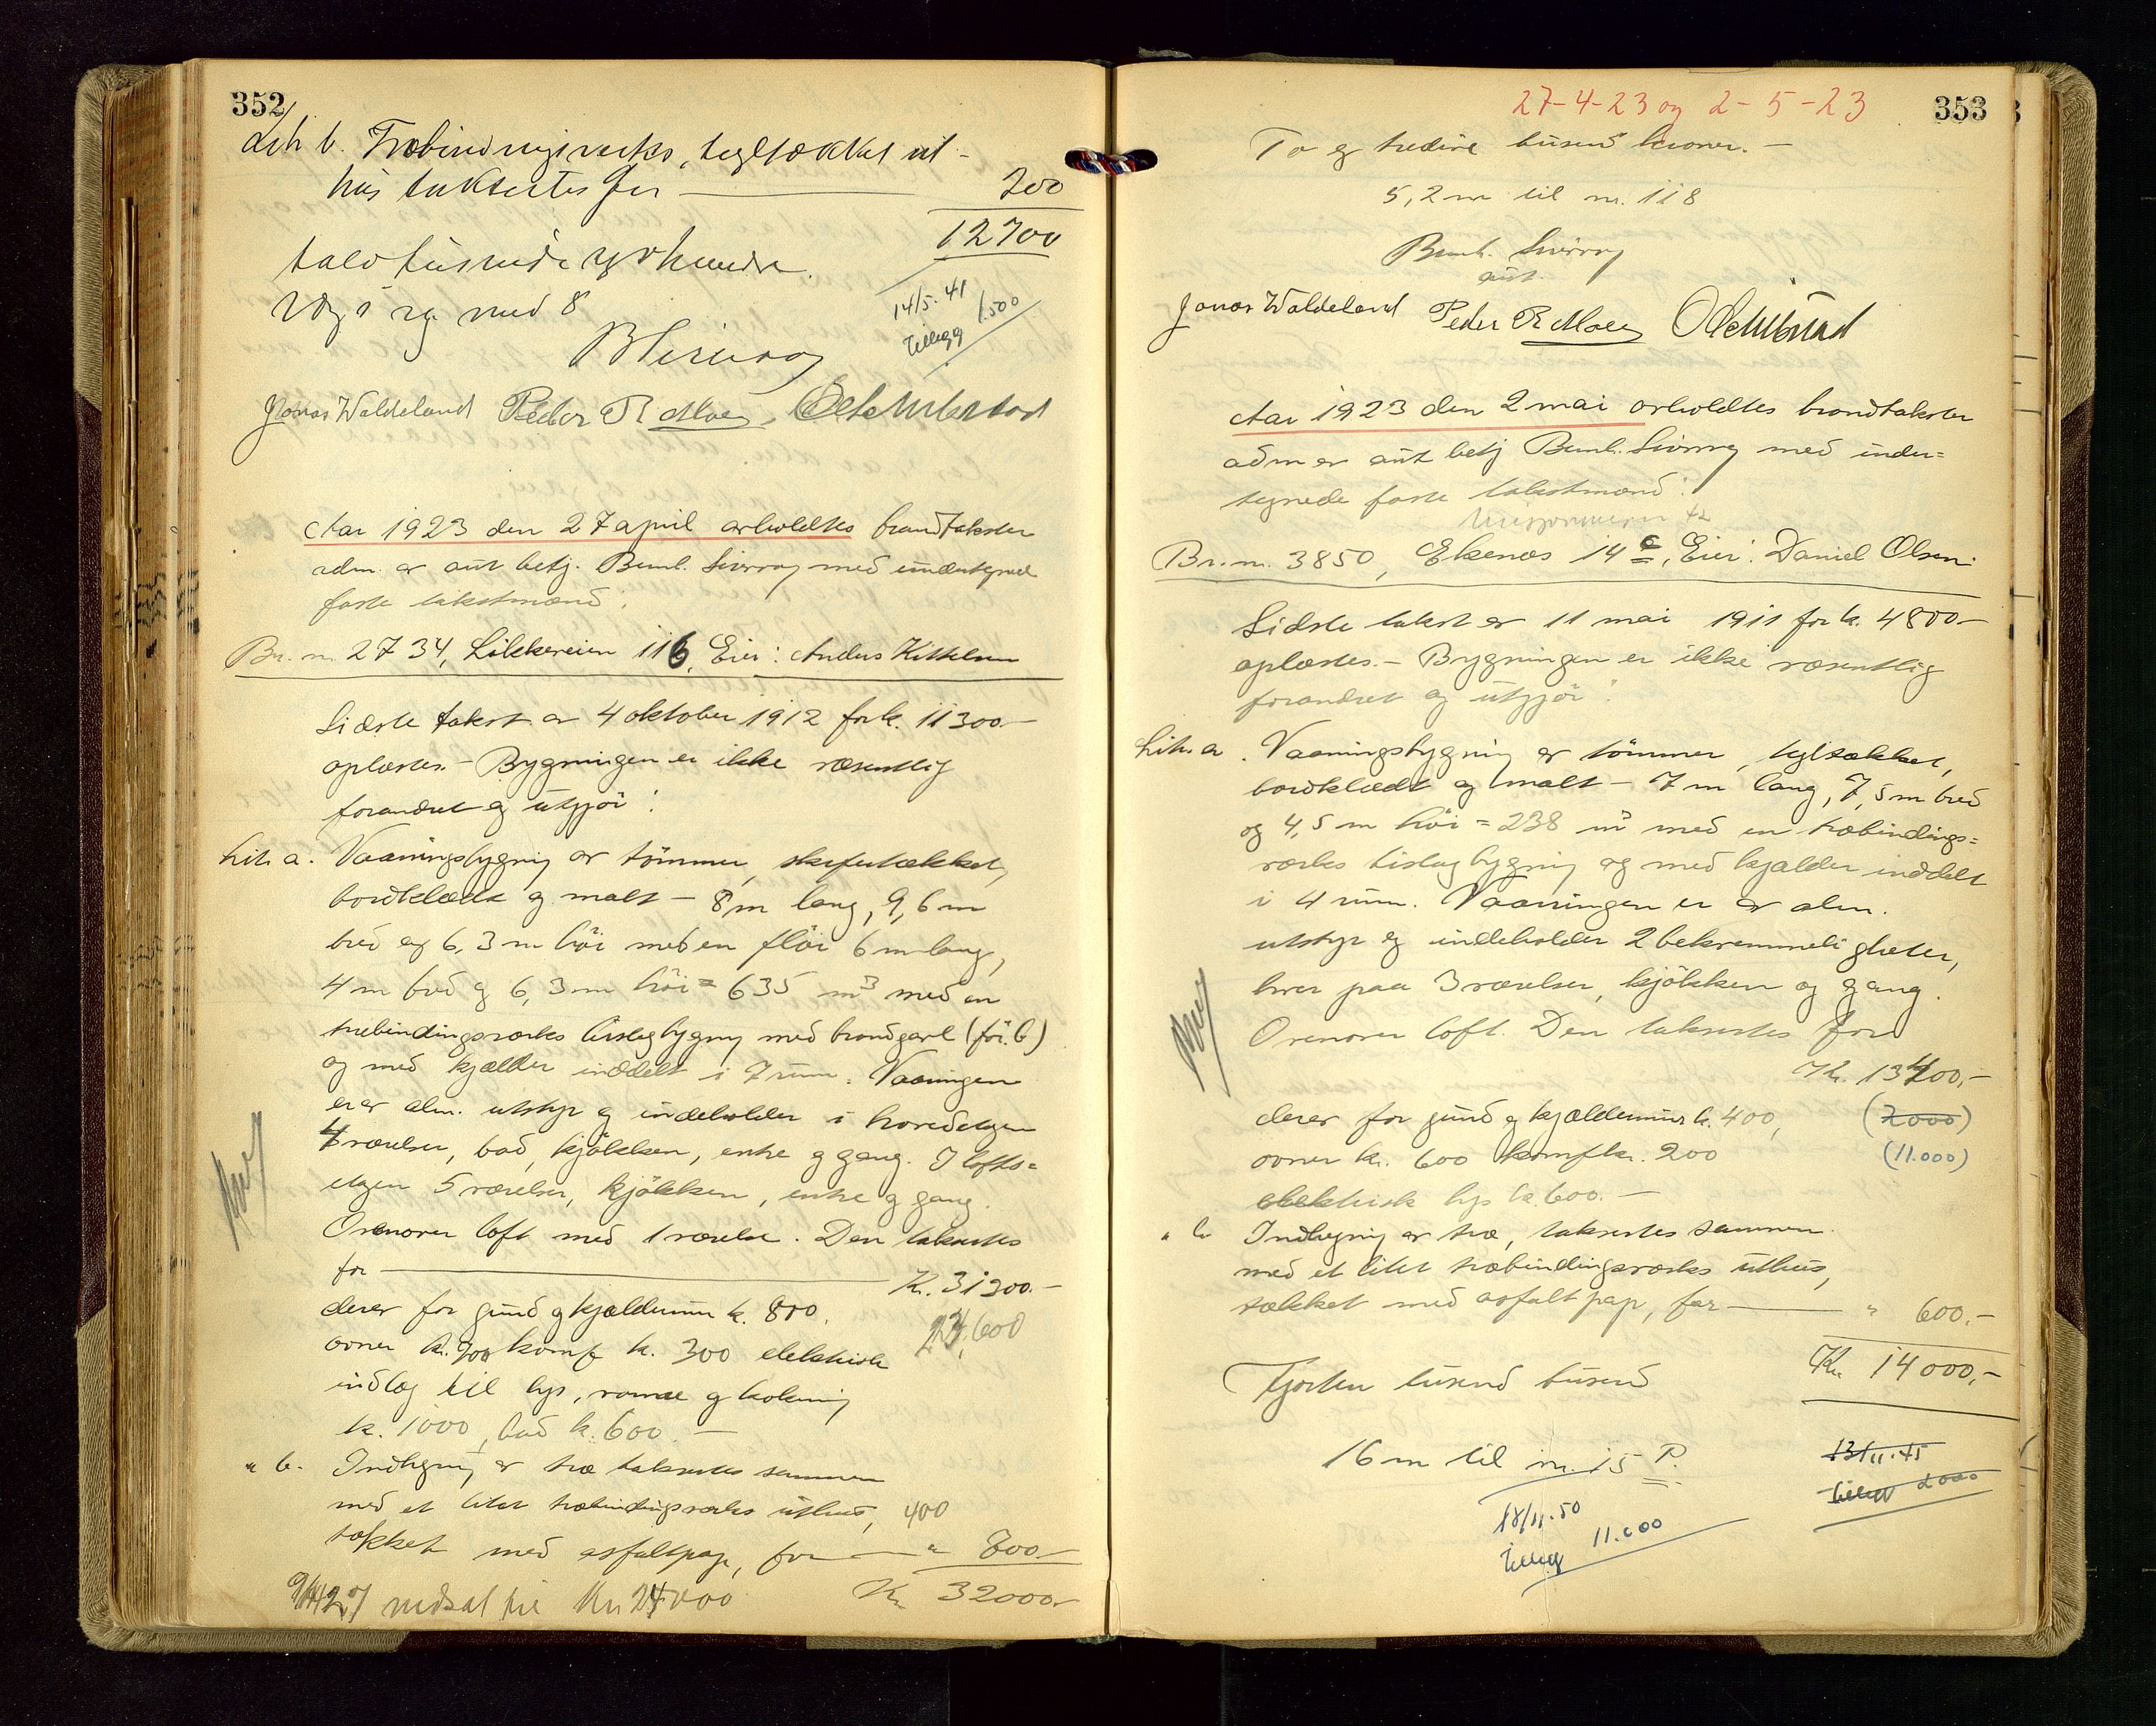 352
Lit b. Træbindingsverks, tegltækket ut-
hus taksertes for 700
12700
tolv tusinde syvhundre.
Væg i væg med 8
14/5.41
Tillegg 1.500
Jonas Waldeland Peder R. Moe
Aar 1923 den 27 april avholdtes brandtakster
adm. av aut betj. Bernh. Sivirøy med undertegnede
faste takstmænd:
Br. nr. 2734, Løkkeveien 116, Eier: Anders Kittelsen
Sidste takst av 4 oktober 1912 for k. 11300.-
oplæstes. - Bygningen er ikke væsentlig
forandret og utgjør:
Lit. a. Vaaningsbygning av tømmer, skifertækket,
bordklædt og malt - 8 m lang, 9,6 m
bred og 6,3 m høi med en fløi 6 m lang,
4 m bred og 6,3 m høi = 635 m³ med en
træbindingsverks tilslagbygning med brandgavl (før. b)
og med kjælder inddelt i 7 rum. Vaaningen
er av alm. utstyr og indeholder i hovedetagen
4 værelser, bad, kjøkken, entre og gang. I lofts=
etagen 5 værelser, kjøkken, entre og gang.
Ovenover loft med 1 værelse. Den taksertes
for Kr. 31200.-
derav for grund og kjældermur k. 800,
23,600
ovner k. 900 komf k. 300 elektrisk
indlæg til lys, varme og kokning
k. 1000, bad k. 600.-
" b. Indhegning av træ taksertes sammen
med et litet træbindingsverks uthus, 400
tækket med asfaltpap, for " 800.-
Kr. 32000.-
9/4 27 nedsat til Kr. 24000
27-4-23 og 2-5-23 353
To og tredive tusend kroner.-
5,2 m til nr. 118
Bernh. Sivirøy
aut.
Jonas Waldeland Peder R Moe
Aar 1923 den 2 mai avholdtes brandtakster
adm av aut betj Bernh. Sivirøy med under=
tegnede faste takstmænd:
Misjonsveien 42
Br. nr. 3850, Ekenæs 14 c, Eier: Daniel Olsen.
Sidste takst av 11 mai 1911 for k. 4800.-
oplæstes. - Bygningen er ikke væsentlig
forandret og utgjør:
Lit. a. Vaaningsbygning av tømmer, tegltækket,
bordklædt og malt - 7 m lang, 7,5 m bred
og 4,5 m høi = 238 m³ med en træbindings=
verks tilslagbygning og med kjælder inddelt
i 4 rum. Vaaningen er av alm.
utstyr og indeholder 2 bekvemmeligheter,
hver paa 3 værelser, kjøkken og gang.
Ovenover loft. Den taksertes for
Kr. 13400,-
derav for grund og kjældermur k. 400, (2000)
ovner kr. 600 komf kr. 200 (11.000)
elektrisk lys k. 600.-
" b Indhegning av træ, taksertes sammen
med et litet træbindingsverks uthus,
tækket med asfaltpap, for " 600.-
Kr. 14000,-
Fjorten tusend tusend
16 m til nr. 15 P.
13/11.45
Tillegg 2000
18/11.50
Tillegg 11.000